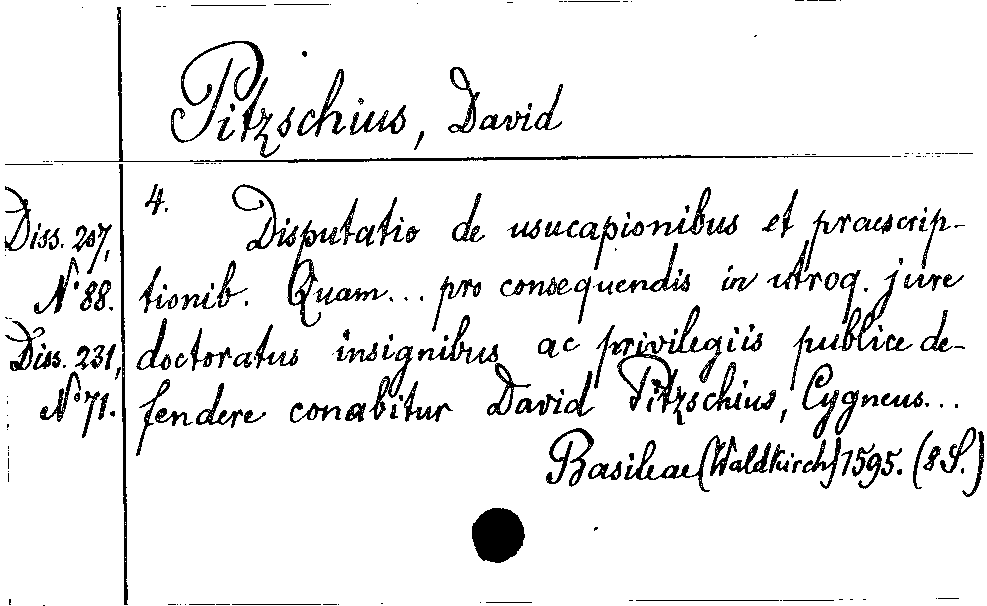 Pitzschius, David
4. Disputatio de usucapionibus et praescrip-
Diss. 207,
N° 88. tionib. Quam... pro consequendis in utroq. jure
Diss. 231, doctoratus insignibus ac privilegiis publice de-
N° 71. fendere conabitur David Pitzschius, Cygneus...
Basileae (Waldkirch) 1595. (8 S.)